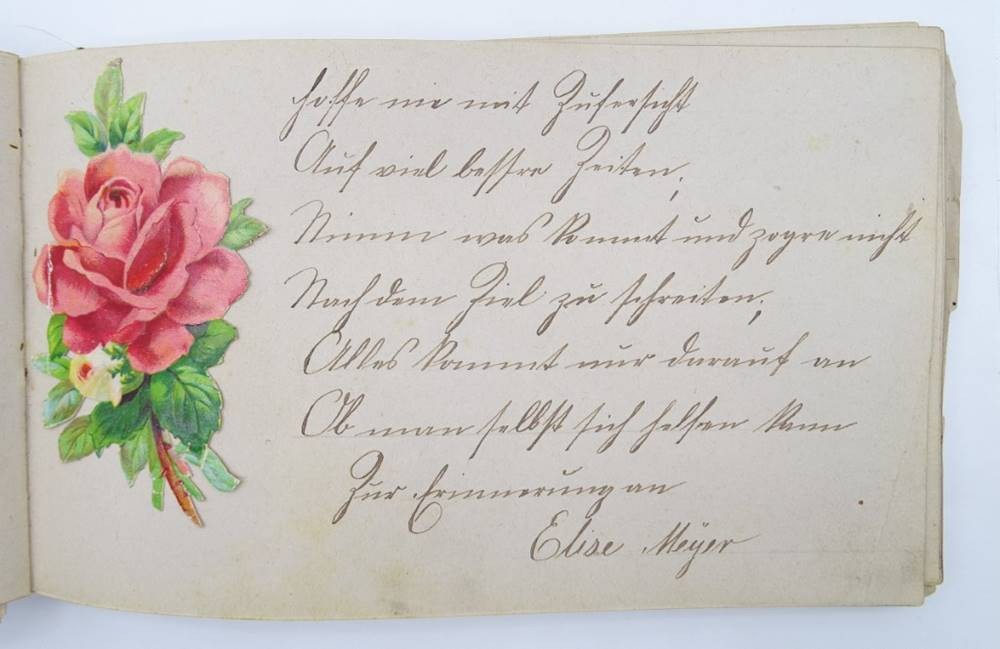 Hoffe nie mit Zufersicht
Auf viel bessre Zeiten,
Nimm was kommt und zögre nicht
Nach dem Ziel zu schreiten;
Alles kommt nur darauf an
Ob man selbst sich helfen kann
Zur Erinnerung an
Elise Meÿer